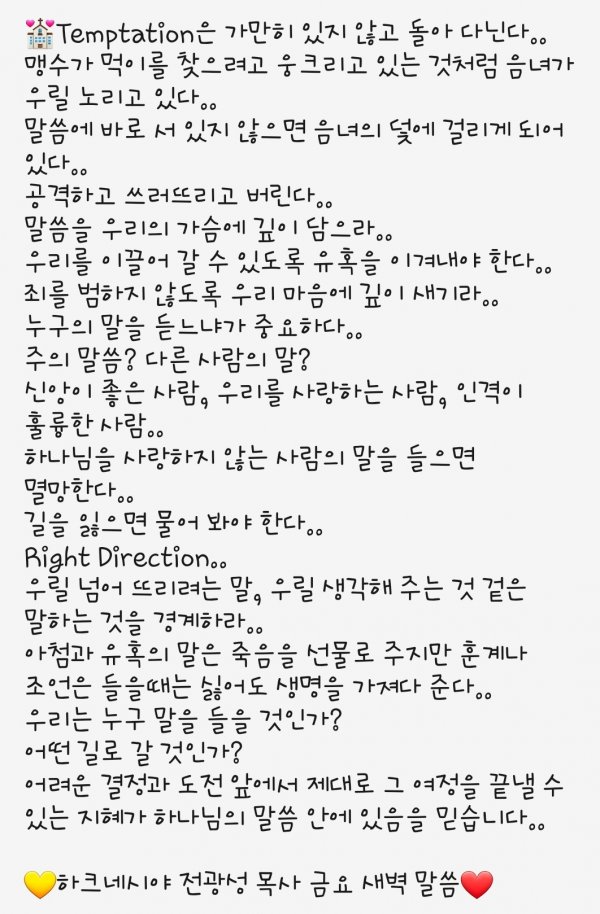 💒Temptation은 가만히 있지 않고 돌아 다닌다..
맹수가 먹이를 찾으려고 웅크리고 있는 것처럼 음녀가
우릴 노리고 있다..
말씀에 바로 서 있지 않으면 음녀의 덫에 걸리게 되어
있다..
공격하고 쓰러뜨리고 버린다..
말씀을 우리의 가슴에 깊이 담으라..
우리를 이끌어 갈 수 있도록 유혹을 이겨내야 한다..
죄를 범하지 않도록 우리 마음에 깊이 새기라..
누구의 말을 듣느냐가 중요하다..
주의 말씀? 다른 사람의 말?
신앙이 좋은 사람, 우리를 사랑하는 사람, 인격이
훌륭한 사람..
하나님을 사랑하지 않는 사람의 말을 들으면
멸망한다..
길을 잃으면 물어 봐야 한다..
Right Direction..
우릴 넘어 뜨리려는 말, 우릴 생각해 주는 것 겉은
말하는 것을 경계하라..
아첨과 유혹의 말은 죽음을 선물로 주지만 훈계나
조언은 들을때는 싫어도 생명을 가져다 준다..
우리는 누구 말을 들을 것인가?
어떤 길로 갈 것인가?
어려운 결정과 도전 앞에서 제대로 그 여정을 끝낼 수
있는 지혜가 하나님의 말씀 안에 있음을 믿습니다..
💛하크네시야 전광성 목사 금요 새벽 말씀❤️